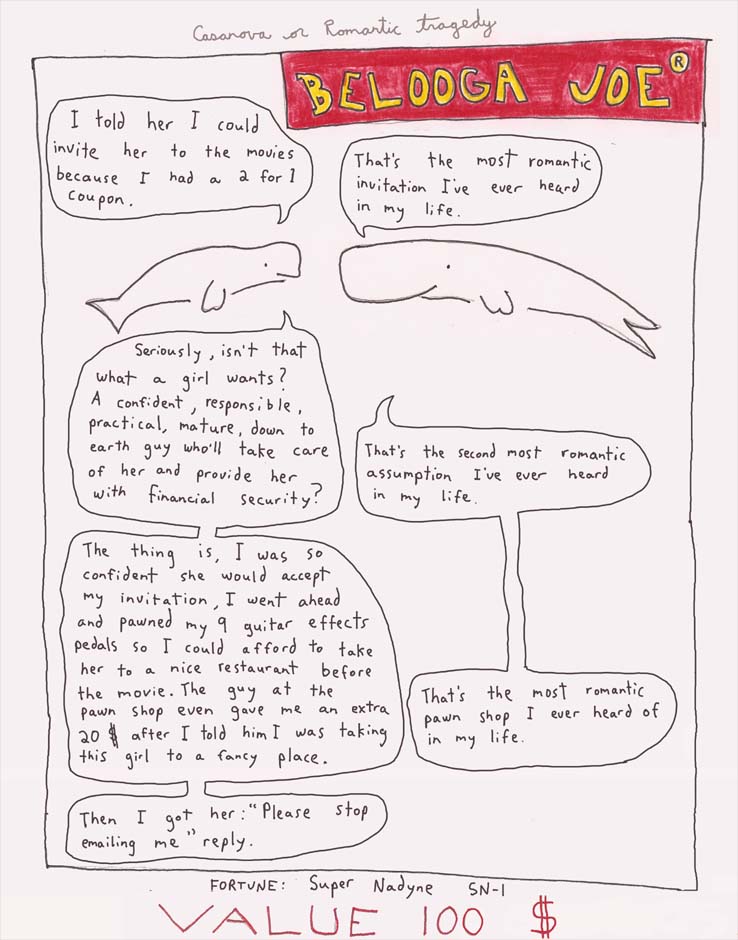 Casanova or Romantic tragedy
BELOOGA JOE®
I told her I could
invite her to the movies
because I had a 2 for 1
coupon.
That's the most romantic
invitation I've ever heard
in my life.
Seriously, isn't that
what a girl wants?
A confident, responsible,
practical, mature, down to
earth guy who'll take care
of her and provide her
with financial security?
That's the second most romantic
assumption I've ever heard
in my life.
The thing is, I was so
confident she would accept
my invitation, I went ahead
and pawned my 9 guitar effects
pedals so I could afford to take
her to a nice restaurant before
the movie. The guy at the
pawn shop even gave me an extra
20 $ after I told him I was taking
this girl to a fancy place.
That's the most romantic
pawn shop I ever heard of
in my life.
Then I got her: "Please stop
emailing me" reply.
FORTUNE: Super Nadyne SN-1
VALUE 100 $